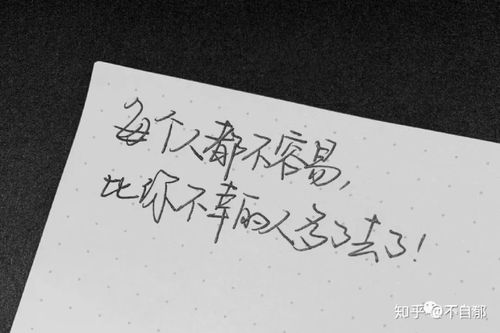 每个人都不容易,
比你不幸的人多了去了!
知乎 @不自郁